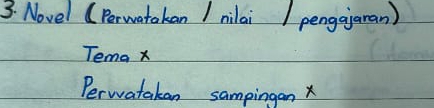 3. Novel (Perwatakan / nilai / pengajaran)
Tema x
Perwatakan sampingan x